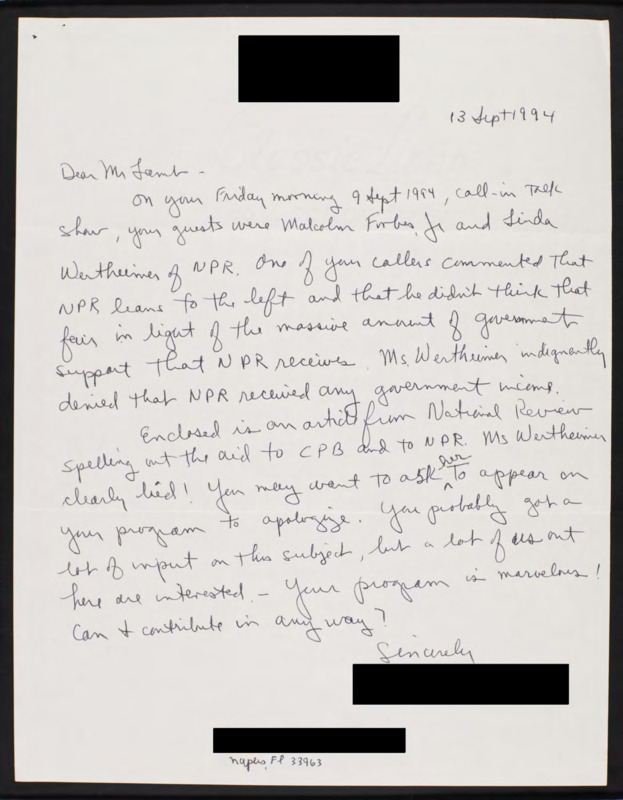 13 Sept 1994
Dear Mr Lamb -
On your Friday morning 9 Sept 1994, call-in talk
show, your guests were Malcolm Forbes, Jr and Linda
Wertheimer of NPR. One of your callers commented that
NPR leans to the left and that he didn't think that
fair in light of the massive amount of government
support that NPR receives. Ms. Wertheimer indignantly
denied that NPR received any government income.
Enclosed is an article from National Review
spelling out the aid to CPB and to NPR. Ms Wertheimer
clearly lied! You may want to ask her to appear on
your program to apologize. You probably got a
lot of input on this subject, but a lot of us out
here are interested. - Your program is marvelous!
Can I contribute in any way?
Sincerely
Naples, Fl 33963